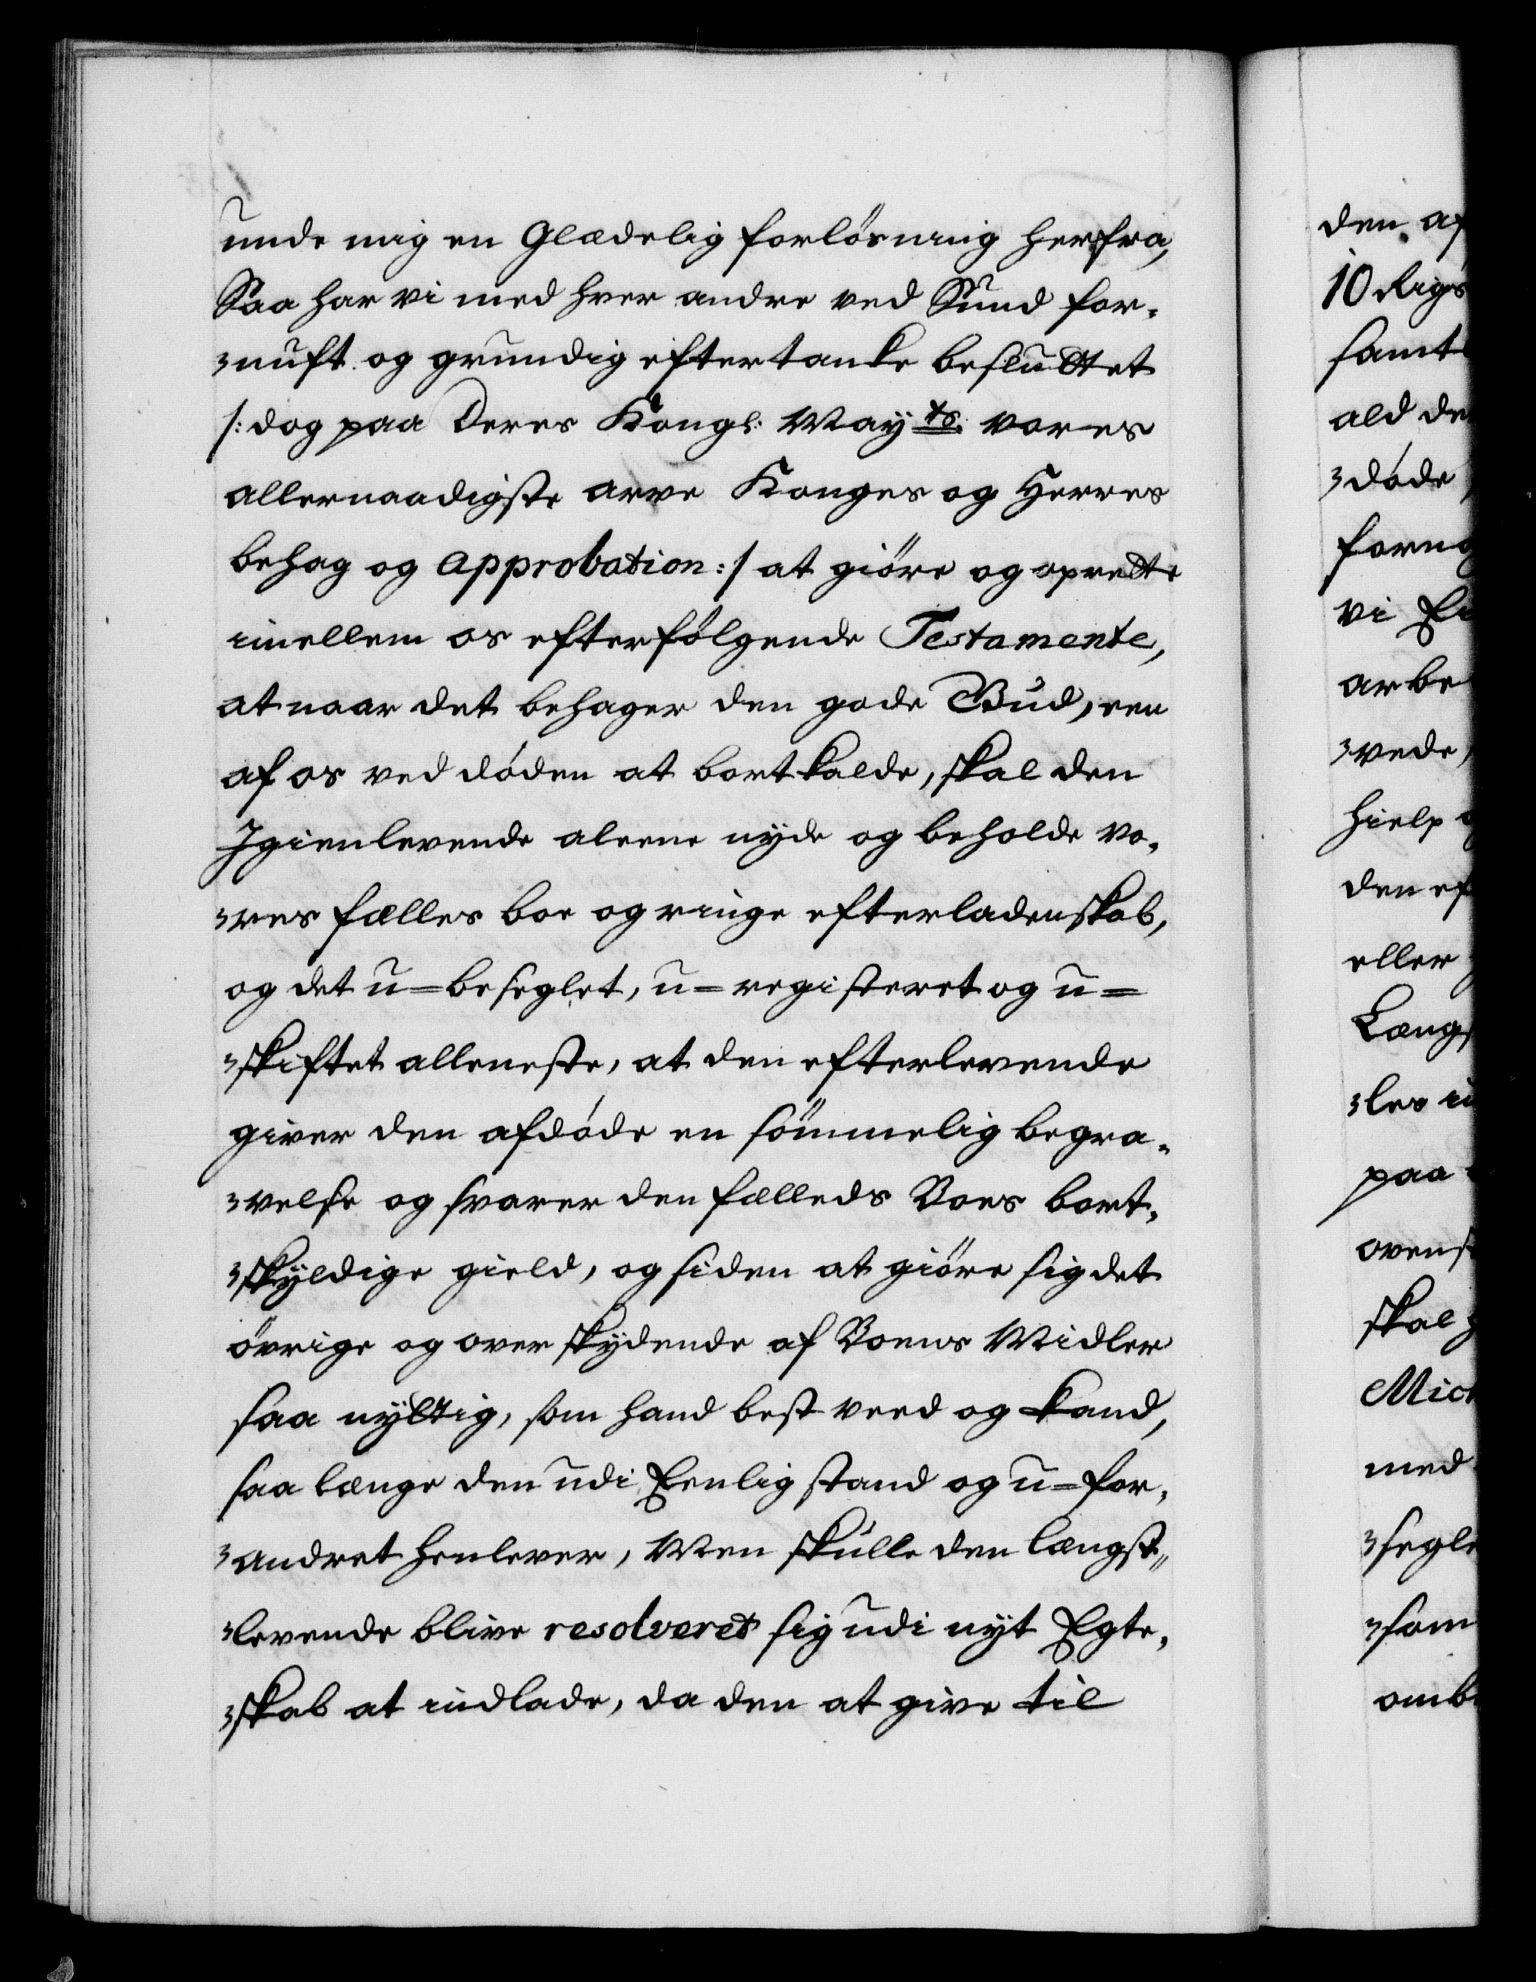 unde mig en Glædelig forløsning herfra,
Saa har vi med hver andre ved Sund for-
-nuft og grundig eftertanke besluttet
/: dog paa Deres Kongl: Mayts: vores
allernaadigste arve Konges og Herres
behag og approbation :/ at giøre og oprette
imellem os efterfølgende Testamente,
at naar det behager den gode Gud, een
af os ved døden at bortkalde, skal den
Igienlevende aleene nyde og beholde vo-
-res fælles boe og ringe efterladenskab,
og det u=beseglet, u=registeret og u=
-skiftet alleneste, at den efterlevende
giver den afdøde en sømmelig begra-
-velse og svarer den fælleds Boes bort-
-skyldige gield, og siden at giøre sig det
øvrige og overskydende af Boens Midler
saa nyttig, som hand best veed og kand,
saa længe den udi Eenlig stand og u=for-
-andret henlever, Men skulle den længst-
-levende blive resolveret sig udi nyt Egte-
-skab at indlade, da den at give til
den af
10 Rigs
samt
ald de
-døde
forn
vi
arbe
-vede
hielp
den ef
eller
Længs
-les
paa
ovens
skal
Mich
med
-segle
-som
omb